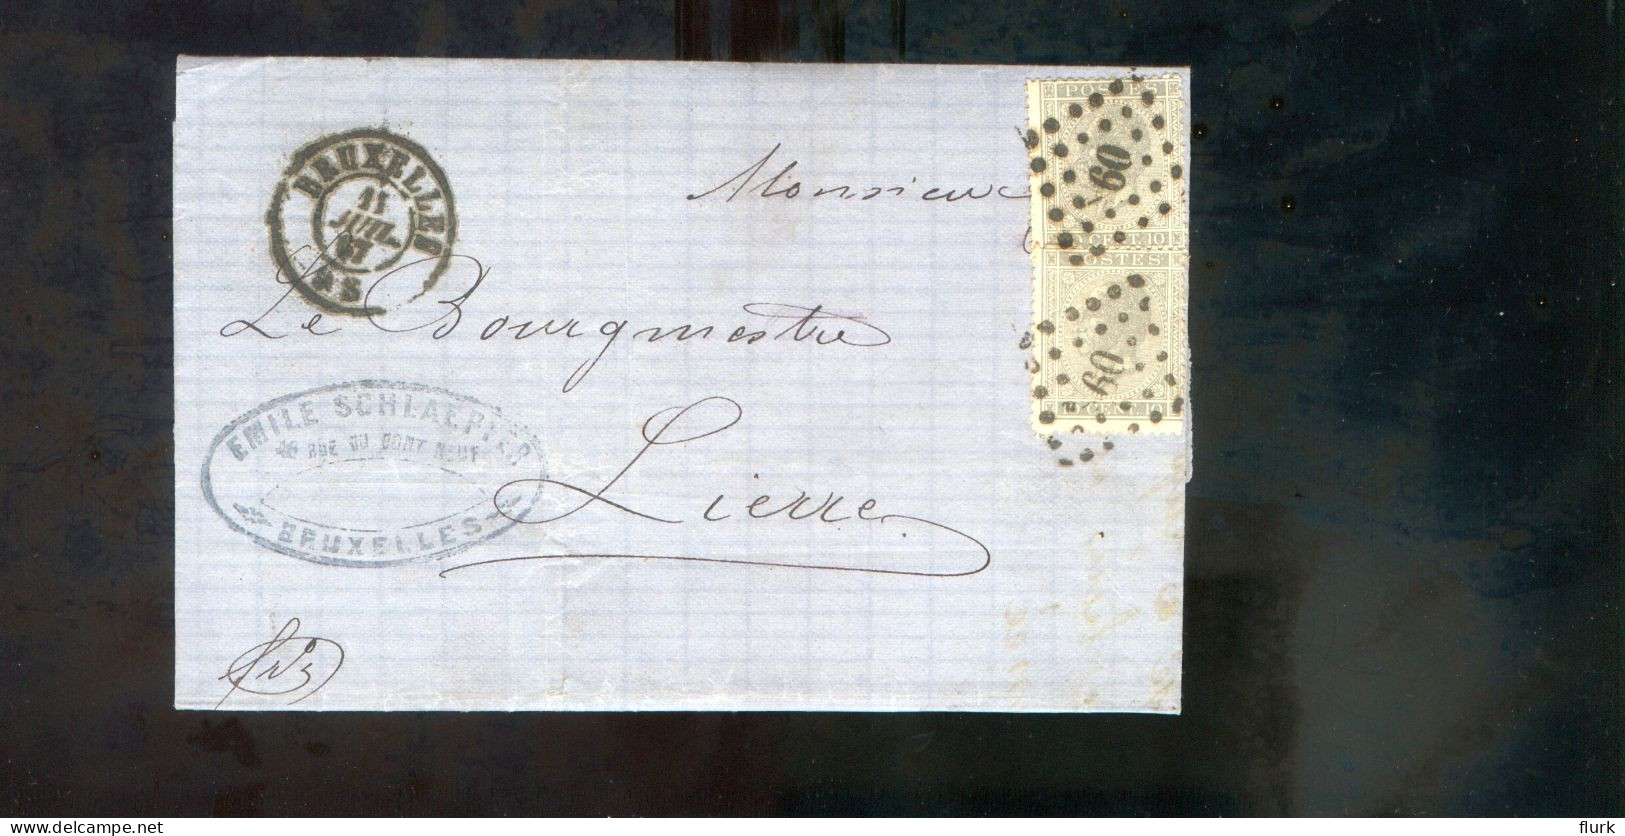 BRUXELLES
11
JUIL.
67
Monsieur
Le Bourgmestre
Lierre
EMILE SCHLAEPFER
46 RUE DU PONT NEUF
BRUXELLES
POSTES
60
CENT. 10
POSTES
60
10 CENT. 10
delcampe.net
flurk